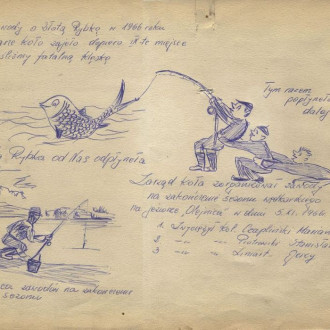 zawody o Złotą Rybkę w 1966 roku
Koło zajęło dopiero miejsce
fatalną klęskę
Tym razem
popłynęła
dalej
Rybka od Nas odpłynęła
Zarząd Koła zorganizował zawody
na zakończenie sezonu wędkarskiego
na jeziorze w dniu 5.XI.1966
1. kol. Czapliński Marian
2 —„— —„— Piotrowski Stanisław
3 —„— —„— Jerzy
zawodów na zakończenie
sezonu